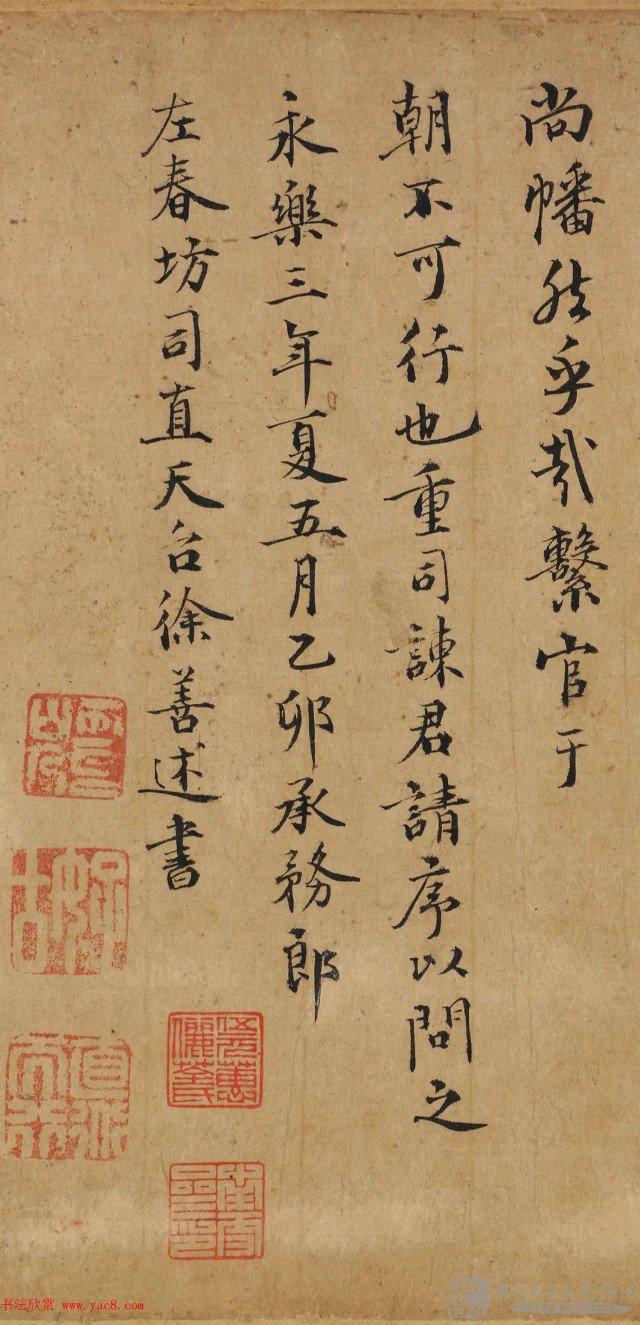 尚幡然乎哉繫官于
朝不可行也重司諫君請序以問之
永樂三年夏五月乙卯承務郎
左春坊司直天台徐善述書
书法欣赏 www.yac8.com